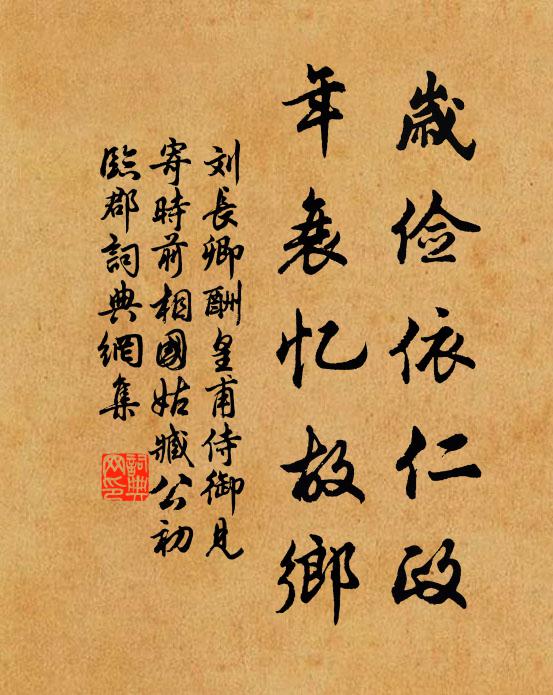 歲俭依仁政
年衰忆故鄉
刘長卿酬皇甫侍御見
寄時前相國姑臧公初
臨郡詞典網集
詞典
网印